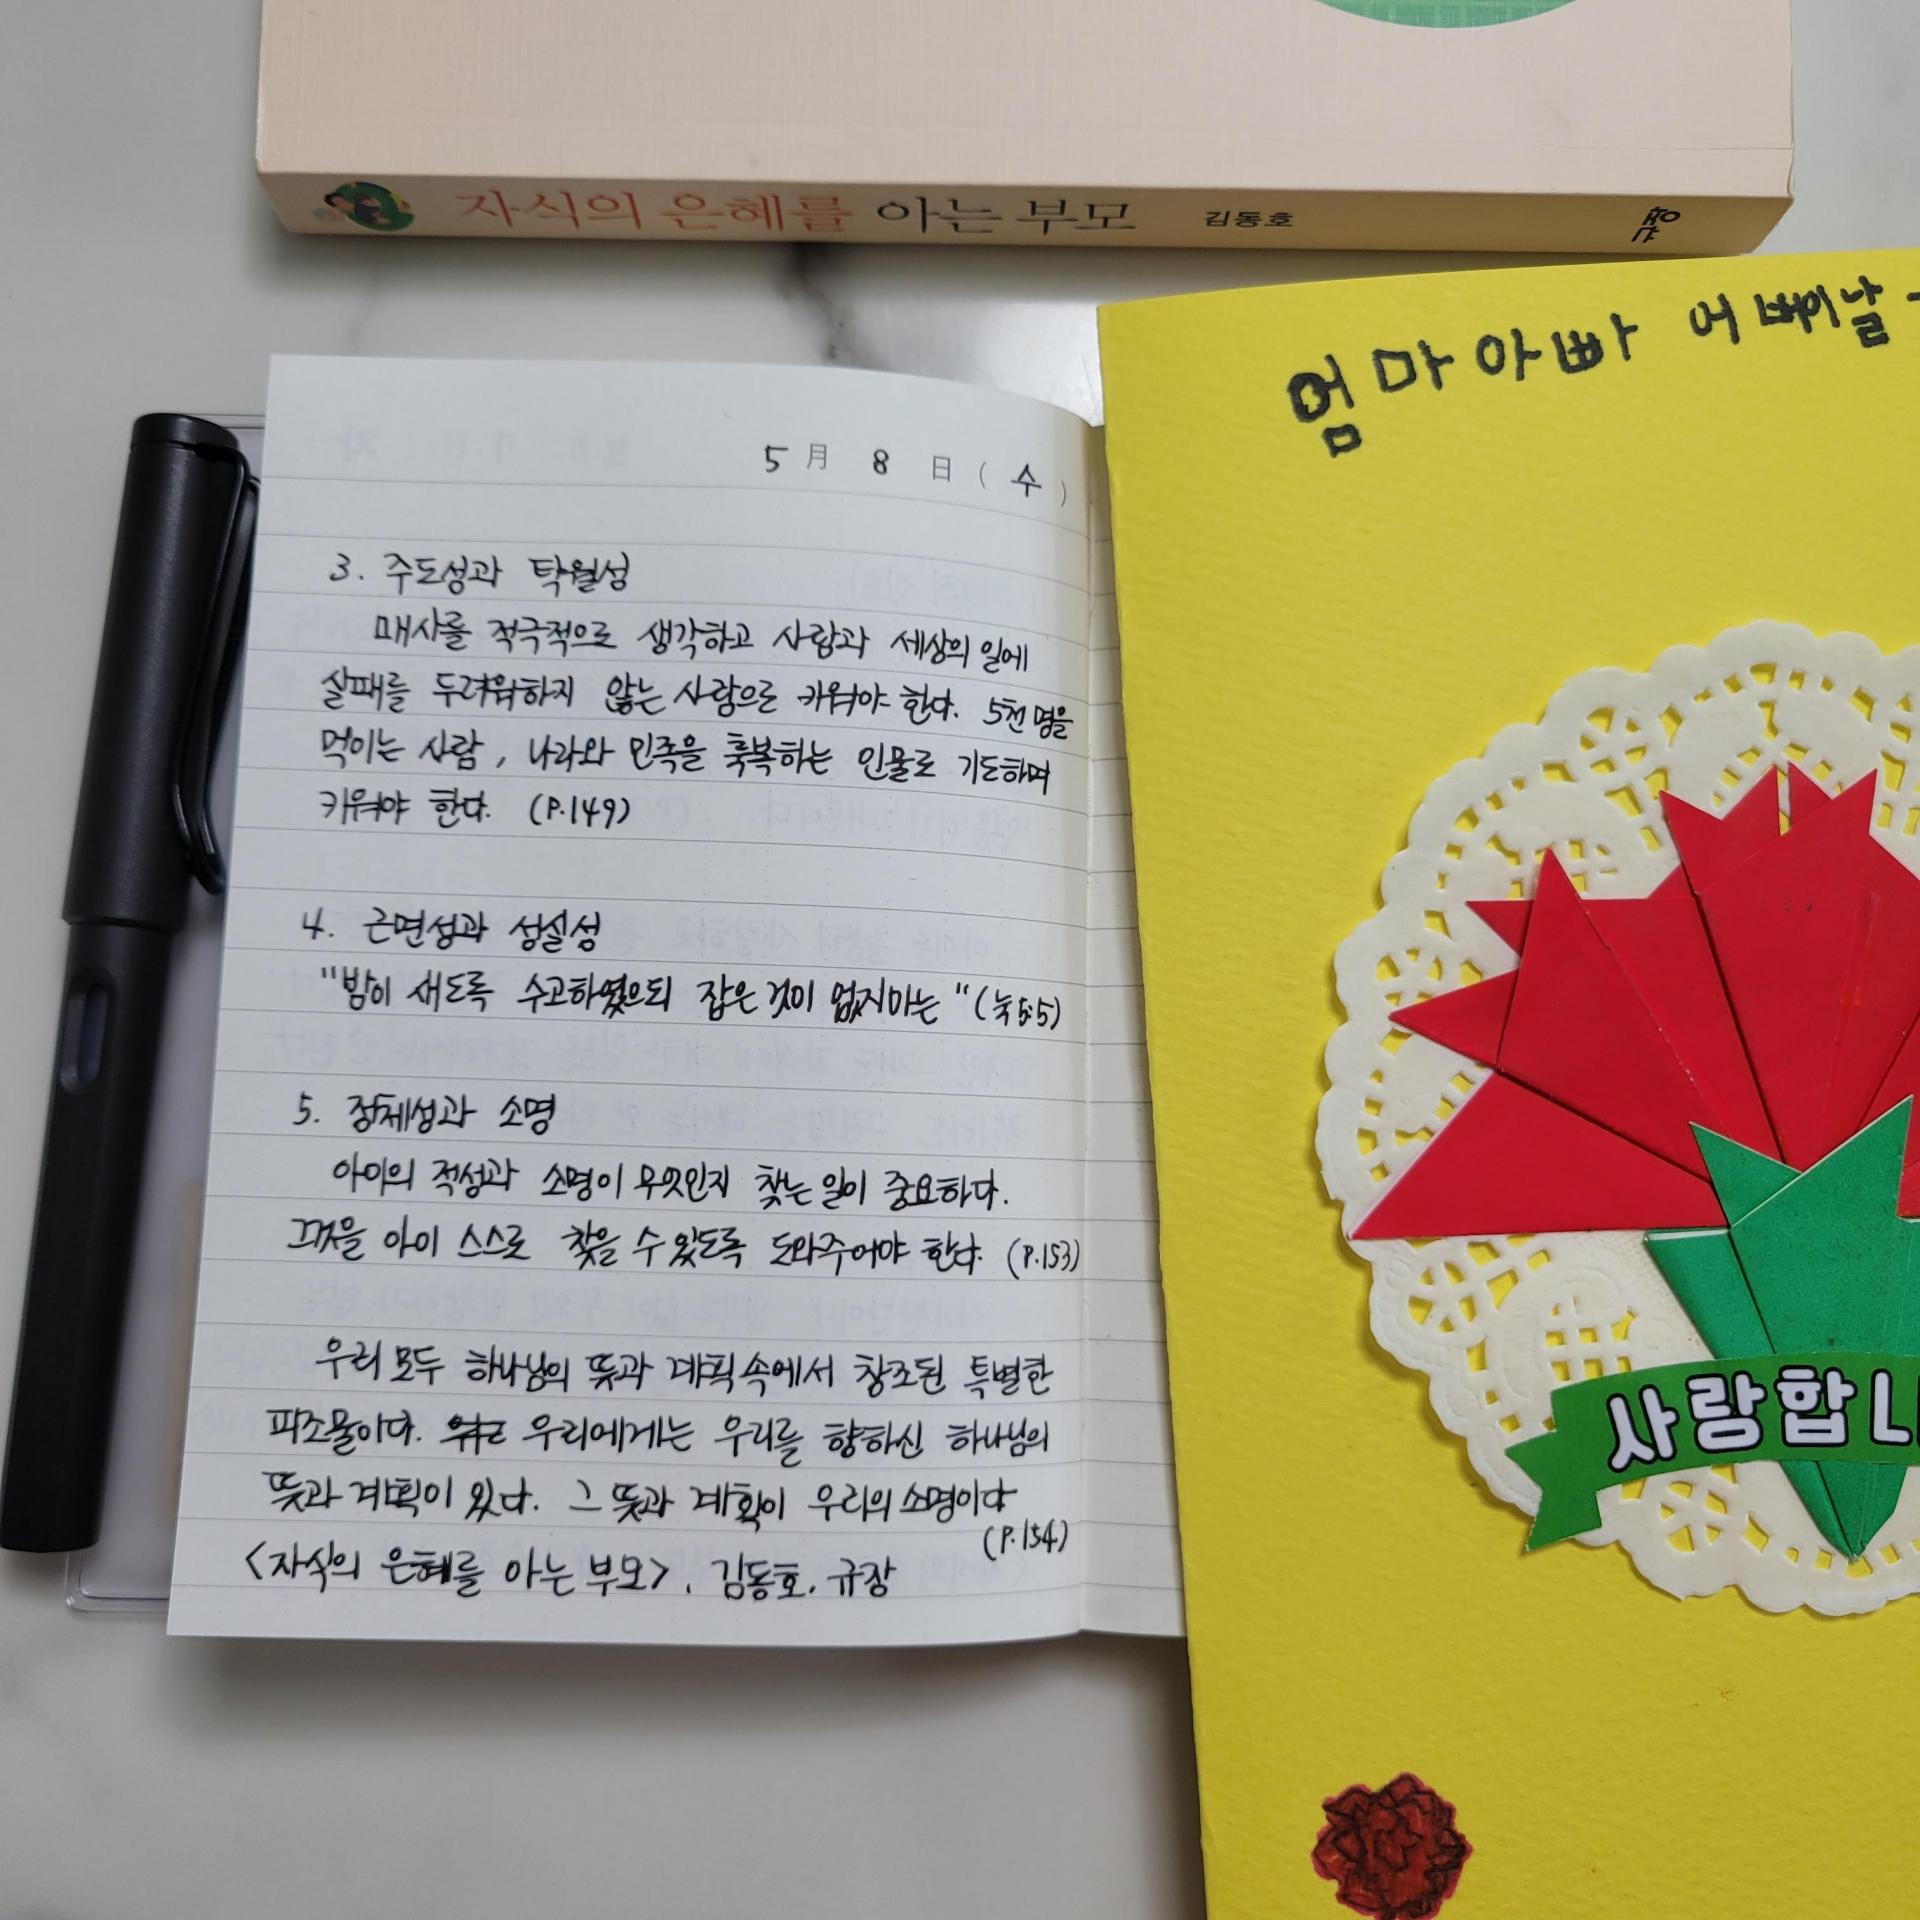 자식의 은혜를 아는 부모 김동호
엄마아빠 어버이날
5月 8日(수)
3. 주도성과 탁월성
매사를 적극적으로 생각하고 사람과 세상의 일에
실패를 두려워하지 않는 사람으로 키워야 한다. 5천 명을
먹이는 사람, 나라와 민족을 축복하는 인물로 기도하며
키워야 한다. (P.149)
4. 근면성과 성실성
"밤이 새도록 수고하였으되 잡은 것이 없지마는" (눅5:5)
5. 정체성과 소명
아이의 적성과 소명이 무엇인지 찾는 일이 중요하다.
그것을 아이 스스로 찾을 수 있도록 도와주어야 한다. (P.153)
우리 모두 하나님의 뜻과 계획 속에서 창조된 특별한
피조물이다. 우리에게는 우리를 향하신 하나님의
뜻과 계획이 있다. 그 뜻과 계획이 우리의 소명이다
(P.154)
<자식의 은혜를 아는 부모>, 김동호, 규장
사랑합니